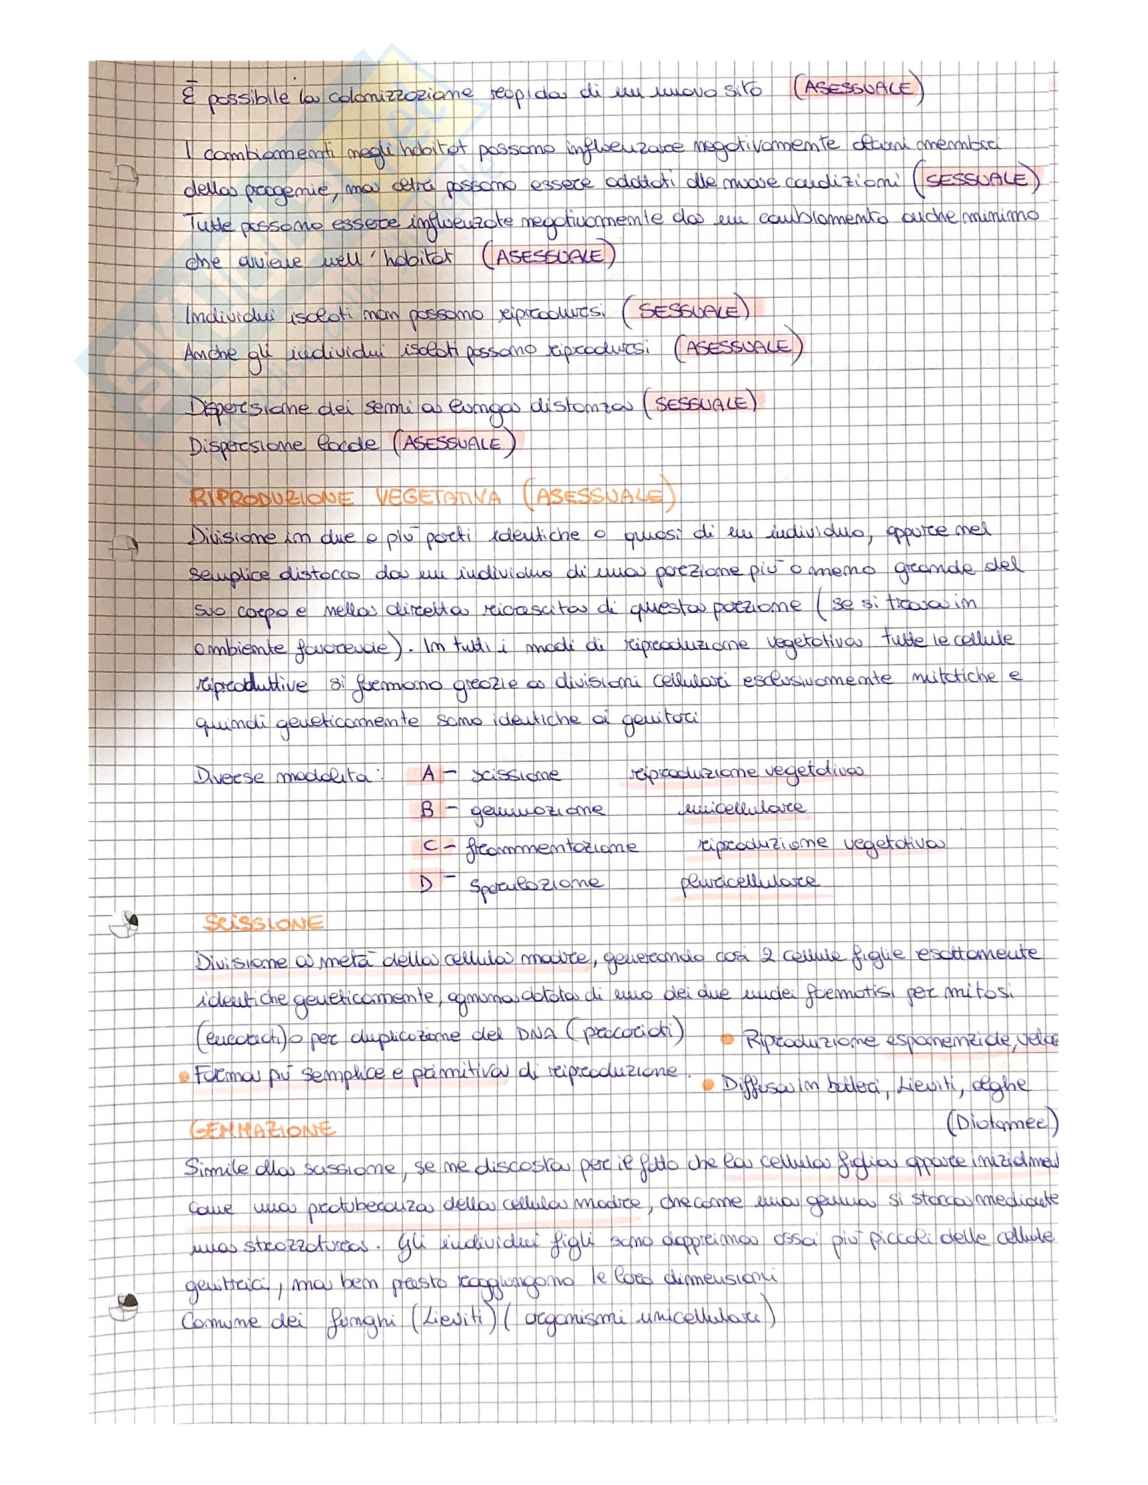 È possibile la colonizzazione rapida di un nuovo sito (ASESSUALE)
I cambiamenti negli habitat possono influenzare negativamente alcuni membri
della progenie, ma altri possono essere adattati alle nuove condizioni (SESSUALE)
Tutte possono essere influenzate negativamente da un cambiamento anche minimo
che avviene nell'habitat (ASESSUALE)
Individui isolati non possono riprodursi (SESSUALE)
Anche gli individui isolati possono riprodursi (ASESSUALE)
Dispersione dei semi a lunga distanza (SESSUALE)
Dispersione locale (ASESSUALE)
RIPRODUZIONE VEGETATIVA (ASESSUALE)
Divisione in due o più parti identiche o quasi di un individuo, oppure nel
semplice distacco da un individuo di una porzione più o meno grande del
suo corpo e nella diretta ricrescita di questa porzione (se si trova in
ambiente favorevole). In tutti i modi di riproduzione vegetativa tutte le cellule
riproduttive si formano grazie a divisioni cellulari esclusivamente mitotiche e
quindi geneticamente sono identiche ai genitori
Diverse modalità: A - scissione riproduzione vegetativa
B - gemmazione unicellulare
C - frammentazione riproduzione vegetativa
D - sporulazione pluricellulare
SCISSIONE
Divisione a metà della cellula madre, generando così 2 cellule figlie esattamente
identiche geneticamente, ognuna dotata di uno dei due nuclei formatisi per mitosi
(eucarioti) o per duplicazione del DNA (procarioti) • Riproduzione esponenziale, veloce
• Forma più semplice e primitiva di riproduzione. • Diffusa in batteri, Lieviti, alghe
(Diatomee)
GEMMAZIONE
Simile alla scissione, se ne discosta per il fatto che la cellula figlia appare inizialmen
come una protuberanza della cellula madre, che come una gemma si stacca mediante
una strozzatura. Gli individui figli sono dapprima assai più piccoli delle cellule
genitrici, ma ben presto raggiungono le loro dimensioni
Comune dei funghi (Lieviti) (organismi unicellulari)